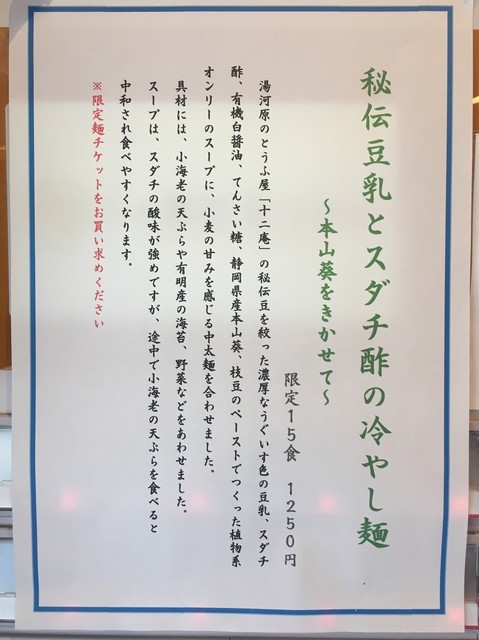 秘伝豆乳とスダチ酢の冷やし麺
～本山葵をきかせて～
限定15食　1250円
湯河原のとうふ屋「十二庵」の秘伝豆を絞った濃厚なうぐいす色の豆乳、スダチ
酢、有機白醤油、てんさい糖、静岡県産本山葵、枝豆のペーストでつくった植物系
オンリーのスープに、小麦の甘みを感じる中太麺を合わせました。
具材には、小海老の天ぷらや有明産の海苔、野菜などをあわせました。
スープは、スダチの酸味が強めですが、途中で小海老の天ぷらを食べると
中和され食べやすくなります。
※限定麺チケットをお買い求めください